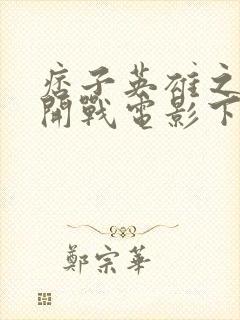 痞子英雄之
開戰電影下
鄭宗華